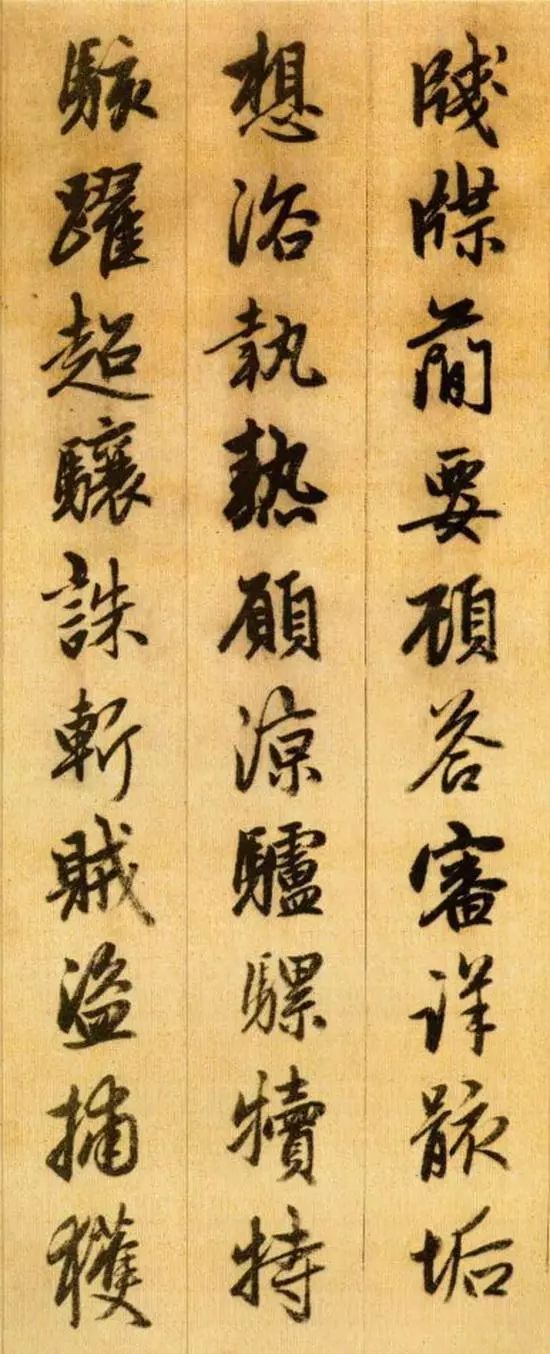 牋牒簡要顧答審詳骸垢
想浴執熱願涼驢騾犢特
駭躍超驤誅斬賊盜捕獲